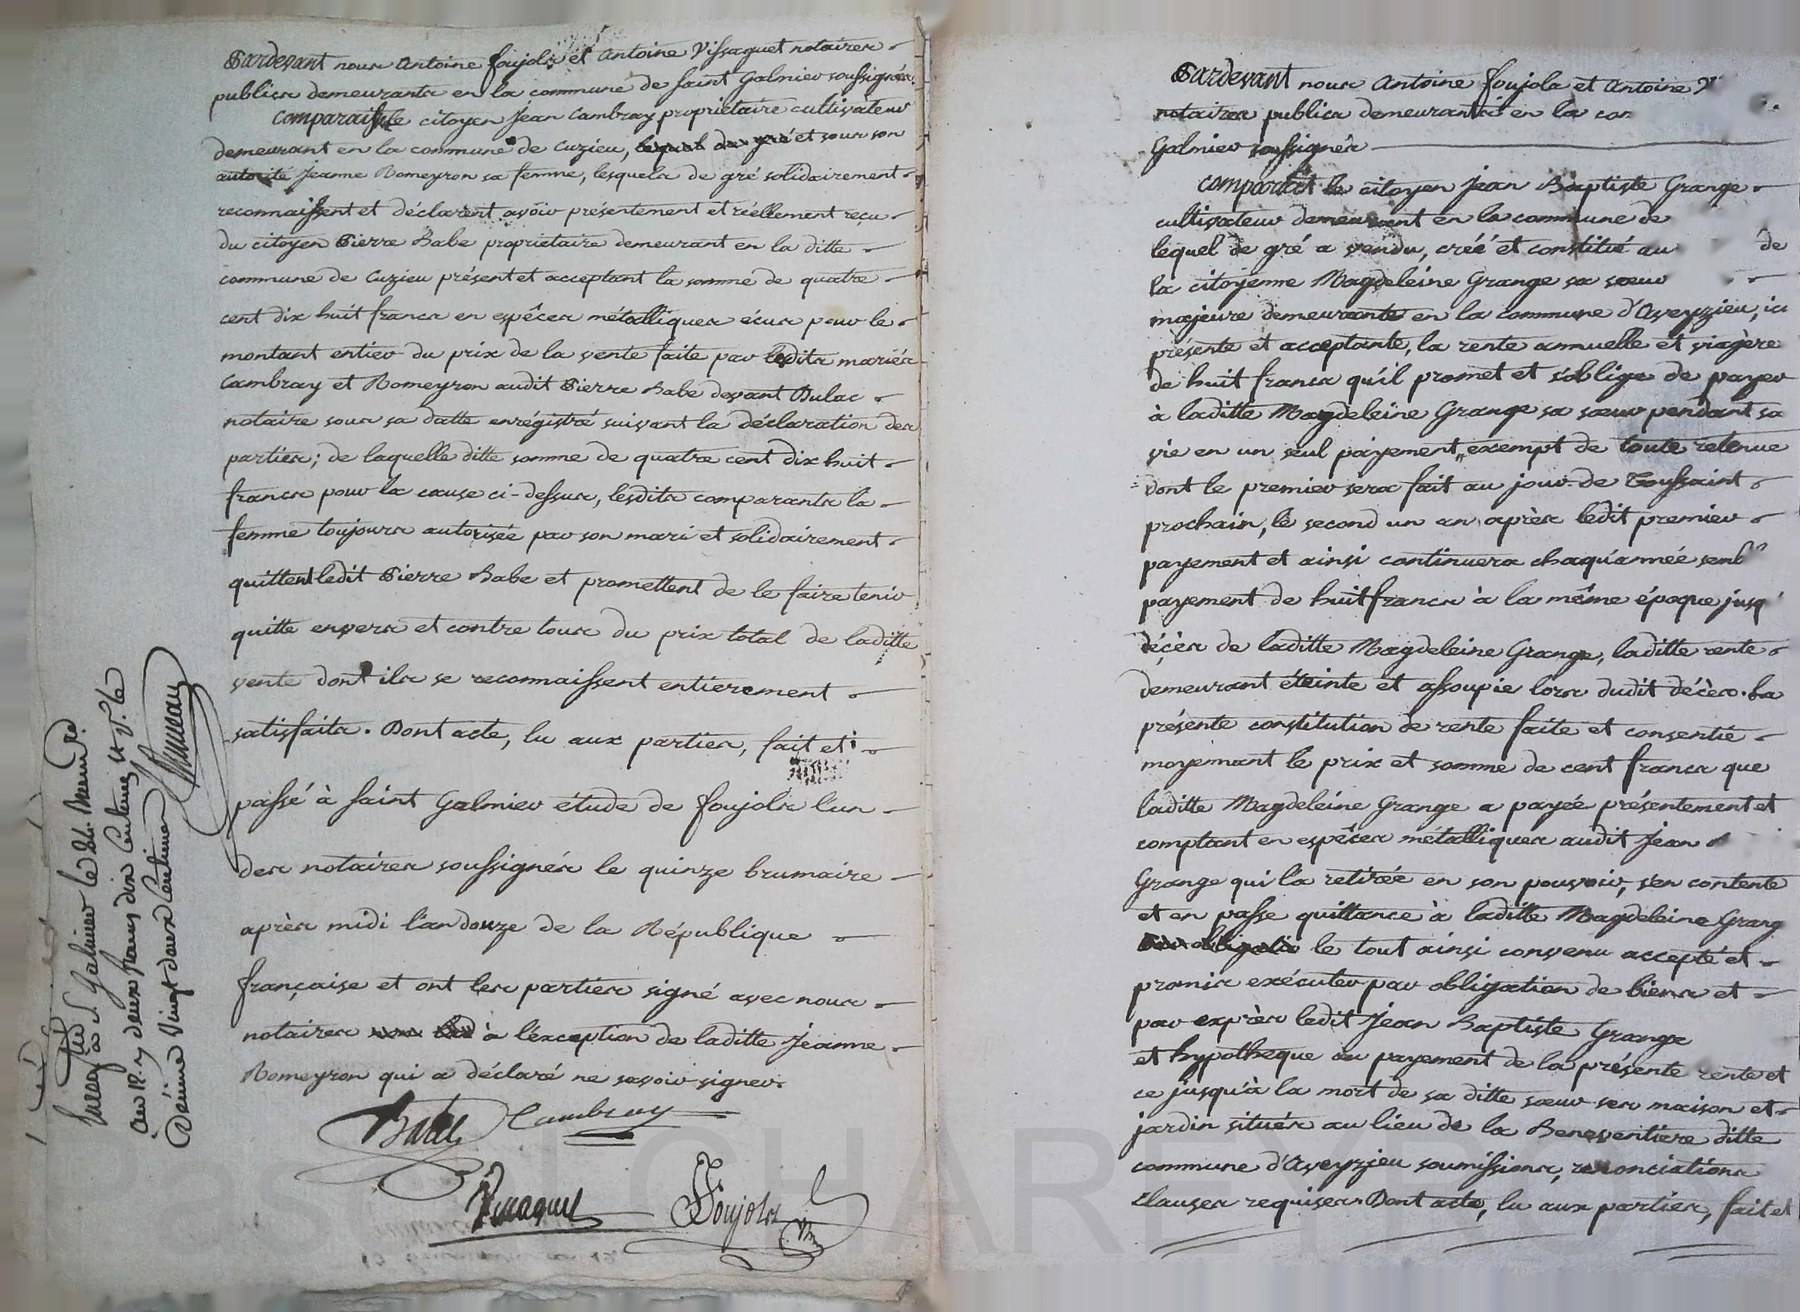 Pardevant nous Antoine foujols et Antoine Vissaguet notaires
publics demeurants en la commune de saint Galmier soussignés.
Comparaissent le citoyen Jean Cambray propriétaire cultivateur
demeurant en la commune de Cuzieu, lequel de gré et sous son
autorité Jeanne Romeyron sa femme, lesquels de gré solidairement
reconnaissent et déclarent avoir présentement et réellement reçu
du citoyen Pierre Babe propriétaire demeurant en la ditte
commune de Cuzieu présent et acceptant la somme de quatre
cent dix huit francs en espêces métalliques écus pour le
montant entier du prix de la vente faite par lesdits mariés
Cambray et Romeyron audit Pierre Babe devant Dulac
notaire sous sa datte enrégistré suivant la déclaration des
parties; de laquelle ditte somme de quatre cent dix huit
francs pour la cause ci-dessus, lesdits comparants la
femme toujours autorisée par son mari et solidairement
quittent ledit Pierre Babe et promettent de le faire tenir
quitte envers et contre tous du prix total de laditte
vente dont ils se reconnaissent entierement
satisfaits. Dont acte, lu aux parties, fait et
passé à saint Galmier étude de foujols l'un
des notaires soussignés le quinze brumaire
après midi l'an douze de la République
française et ont les parties signé avec nous
notaires à l'exception de laditte Jeanne
Romeyron qui a déclaré ne savoir signer.
Babe Cambray
Vissaguet Foujols
à St Galmier le 24 Brum.re
an 12. deux francs dix Centimes
Décime Vingt deux Centimes
Pardevant nous Antoine foujols et Antoine V
notaires publics demeurants en la com
Galmier soussignés
Comparait le citoyen Jean Baptiste Grange
cultivateur demeurant en la commune de
lequel de gré a vendu, créé et constitué au de
la citoyenne Magdeleine Grange sa sœur
majeure demeurante en la commune d'Aveyzieu, ici
présente et acceptante, la rente annuelle et viagère
de huit francs qu'il promet et s'oblige de payer
à laditte Magdeleine Grange sa sœur pendant sa
vie en un seul payement, exempt de toute retenue
dont le premier sera fait au jour de Toussaint
prochain, le second un an après ledit premier
payement et ainsi continuera chaqu'année semb
payement de huit francs à la même époque jusq
décès de laditte Magdeleine Grange, laditte rente
demeurant éteinte et assoupie lors dudit décès. La
présente constitution de rente faite et consentie
moyennant le prix et somme de cent francs que
laditte Magdeleine Grange a payée présentement et
comptant en espêces métalliques audit Jean
Grange qui l'a retirée en son pouvoir, s'en contente
et en passe quittance à laditte Magdeleine Grang
le tout ainsi convenu accepté et
promis exécuter par obligation de biens et
par exprès ledit Jean Baptiste Grange
et hypotheque au payement de la présente rente et
ce jusqu'à la mort de sa ditte sœur ses maison et
jardin situés au lieu de la Beneventiere ditte
commune d'Aveyzieu soumissions, renonciations
clauses requises. Dont acte, lu aux parties, fait et